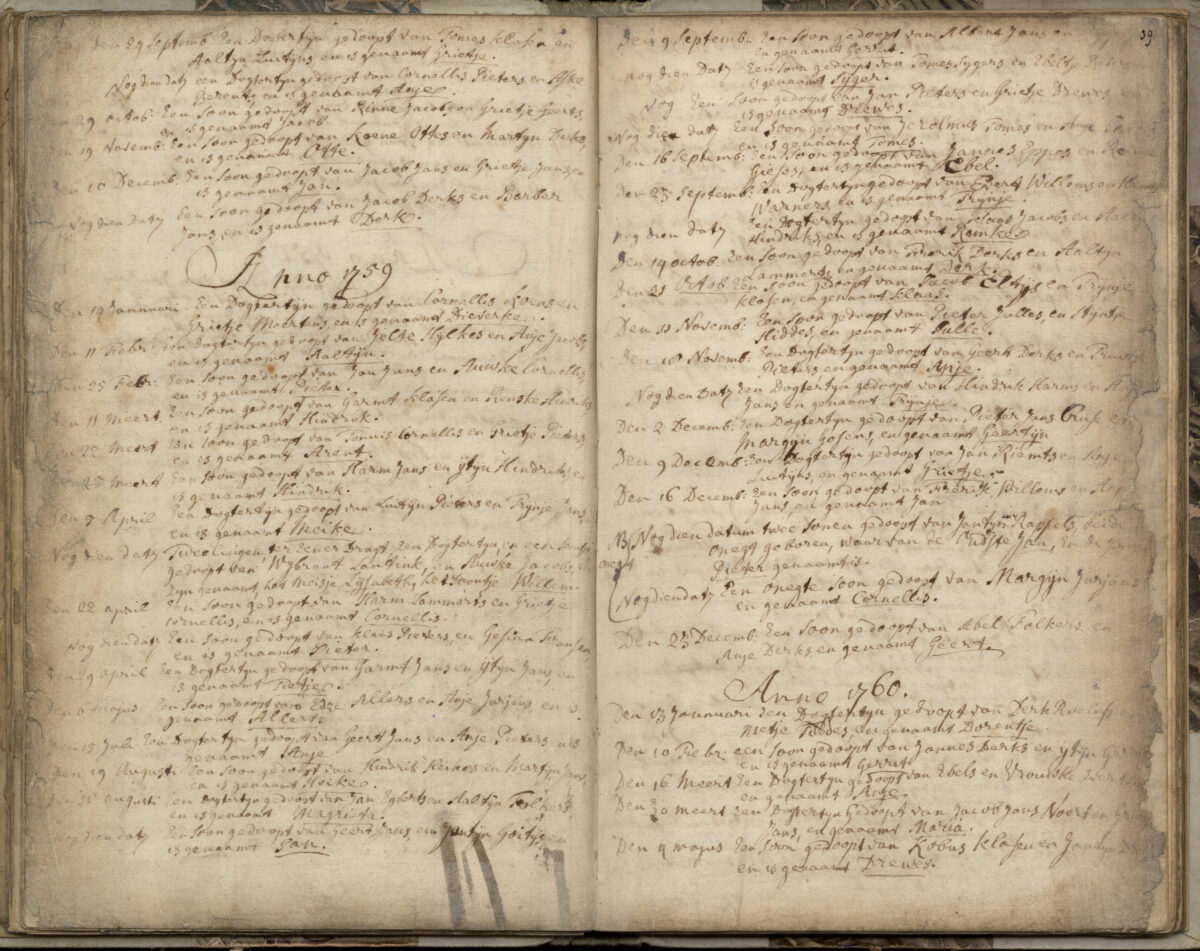 Nog den 24 Septemb: Een Dogtertijn gedoopt van Tomes Klasen en
Aaltijn Luitijns en is genaamt Grietje.
Nog dien datz een Dogtertijn gedoopt van Cornellis Pieters en
Berents en is genaamt Anje.
en 29 octob: Een Soon gedoopt van Rinne Jacobs en Grietje Geerts,
en is genaamt Jacob
19 Novemb: Een Soon gedoopt van Koene Ottes en Martijn Derks,
en is genaamt Otte.
den 10 Decemb. Een Soon gedoopt van Jacob Jans en Grietje Jansen
is genaamt Jan.
Nog dien datz Een Soon gedoopt van Jacob Derks en Barber
Jans, en is genaamt Derk.
Anno 1759
Den 14 Jannuari Een Dogtertijn gedoopt van Cornellis Koens en
Grietje Meertens, en is genaamt Dieverke.
Den 11 Febr: Een Dogtertijn gedoopt van Jelde Hylkes en Anje Jacobs,
en is genaamt Aaltijn.
25 Febr: Een Soon gedoopt van Jan Jans en Auwske Cornellis,
en is genaamt Pieter.
den 11 Meert Een Soon gedoopt van Garmt Klasen en Renske Hindriks
en is genaamt Hindrik.
22 Meert Een Soon gedoopt van Tonnis Cornellis en Grietje Pieters
en is genaamt Arent.
25 Meert Een Soon gedoopt van Harm Jans en Ytijn Hindriks en
is genaamt Hindrik.
den 5 April Een Dogtertijn gedoopt van Luitijn Pieters en Trijnje Jans,
en is genaamt Meike.
Nog dien datz Tweelingen, ter Eener Dragt, Een Dogtertijn, en een Soontje
gedoopt van Wybrant Lantink, en Auwske Jacobs,
zijn genaamt het Meisje Lijsabeth, het Soontje Willem.
den 22 april Een Soon gedoopt van Harm Lammerts en Grietje
Cornellis, en is genaamt Cornellis.
Nog dien datz Een Soon gedoopt van Klaes Pieters, en Gesina Fransen,
en is genaamt Pieter.
den 29 april Een Dogtertijn gedoopt van Garmt Jans en Ytijn Jans,
is genaamt Tietje.
den 6 majus Een Soon gedoopt van Edze Allers en Anje Jurjens en is
genaamt Allert.
den 15 Juli Een Dogtertijn gedoopt van Geert Jans en Anje Pieters en is
genaamt Anje.
Den 19 Augusti Een Soon gedoopt van Hindrik Heikes en Martijn Jans,
en is genaamt Heike.
Den 26 augusti Een Dogtertijn gedoopt van Jan Egberts en Aaltijn Folkers
en is genaamt Magrieta.
Nog dien datz Een Soon gedoopt van Geert Jans, en Jantijn Goitijens en
is genaamt Jan.
39
Den 9 Septemb: Een Soon gedoopt van Albert Jans en
en genaamt Gerrit.
Nog dien Datz Een Soon gedoopt van Tomes Sygers en Ebeltje Pieters
is genaamt Syger.
Nog Een Soon gedoopt van Jan Pieters en Grietje Drewes
is genaamt Drewes.
Nog dien datz Een Soon gedoopt van Jerolmus Tomes en Anje
en is genaamt Tomes.
Den 16 Septemb: Een Soon gedoopt van Jannes Eppes en
Gieses, en is genaamt Hebel.
Den 23 Septemb: Een Dogtertijn gedoopt van Evert Willems en
Warners, en is genaamt Trijnje.
Nog dien datz Een Dogtertijn gedoopt van Klaas Jacobs en Aaltje
Hindriks, en is genaamt Reinke.
Den 14 octob: Een Soon gedoopt van Fredrik Derks en Aaltijn
Lammerts, en genaamt Derk.
Den 21 Octob Een Soon gedoopt van Jacob Eltijes en Trijnje
Klasen, en genaamt Klaas.
Den 11 Novemb: Een Soon gedoopt van Pieter Julles, en Stijntje
Hiddes, en genaamt Julle.
Den 18 Novemb: Een Dogtertijn gedoopt van Geert Derks en
Pieters en genaamt Anje.
Nog dien Datz Een Dogtertijn gedoopt van Hindrik Harms en
Jans en genaamt Trijnje.
Den 2 Decemb: Een Dogtertijn gedoopt van Pieter Jans Cruse en
Margijn Gosens, en genaamt Geertijn
Den 9 Decemb: Een Dogtertijn gedoopt van Jan Riemts en Anje
Luitijns, en genaamt Grietje.
Den 16 Decemb: Een Soon gedoopt van Fredrik Willems en
Jans, en genaamt Jan
NB Nog dien datum twee Sonen gedoopt van Jantijn Rappels, beide
onegt
onegt geboren, waar van de Oudste Jan, En de Jongste
Pieter genaamt is.
Nog dien datz Een onegte Soon gedoopt van Margijn Jurjens
en genaamt Cornellis.
Den 23 Decemb: Een Soon gedoopt van Abel Folkers en
Anje Derks en genaamt Geert.
Anno 1760.
Den 13 Jannuari Een Dogtertijn gedoopt van Derk Roelefs
Nietje Taddes, en genaamt Dorentje
Den 10 Febr: een Soon gedoopt van Jannes Derks en Ytijn Gerrits
en is genaamt Gerrit.
Den 16 Meert Een Dogtertijn gedoopt van Ebels en Vrouwke Everts
en genaamt Anje.
Den 30 meert Een Dogtertijn Gedoopt van Jacob Jans Noort en
Jans, en genaamt Maria.
Den 4 majus Een Soon gedoopt van Kobus Klasen en Jantijn
en is genaamt Drewes.